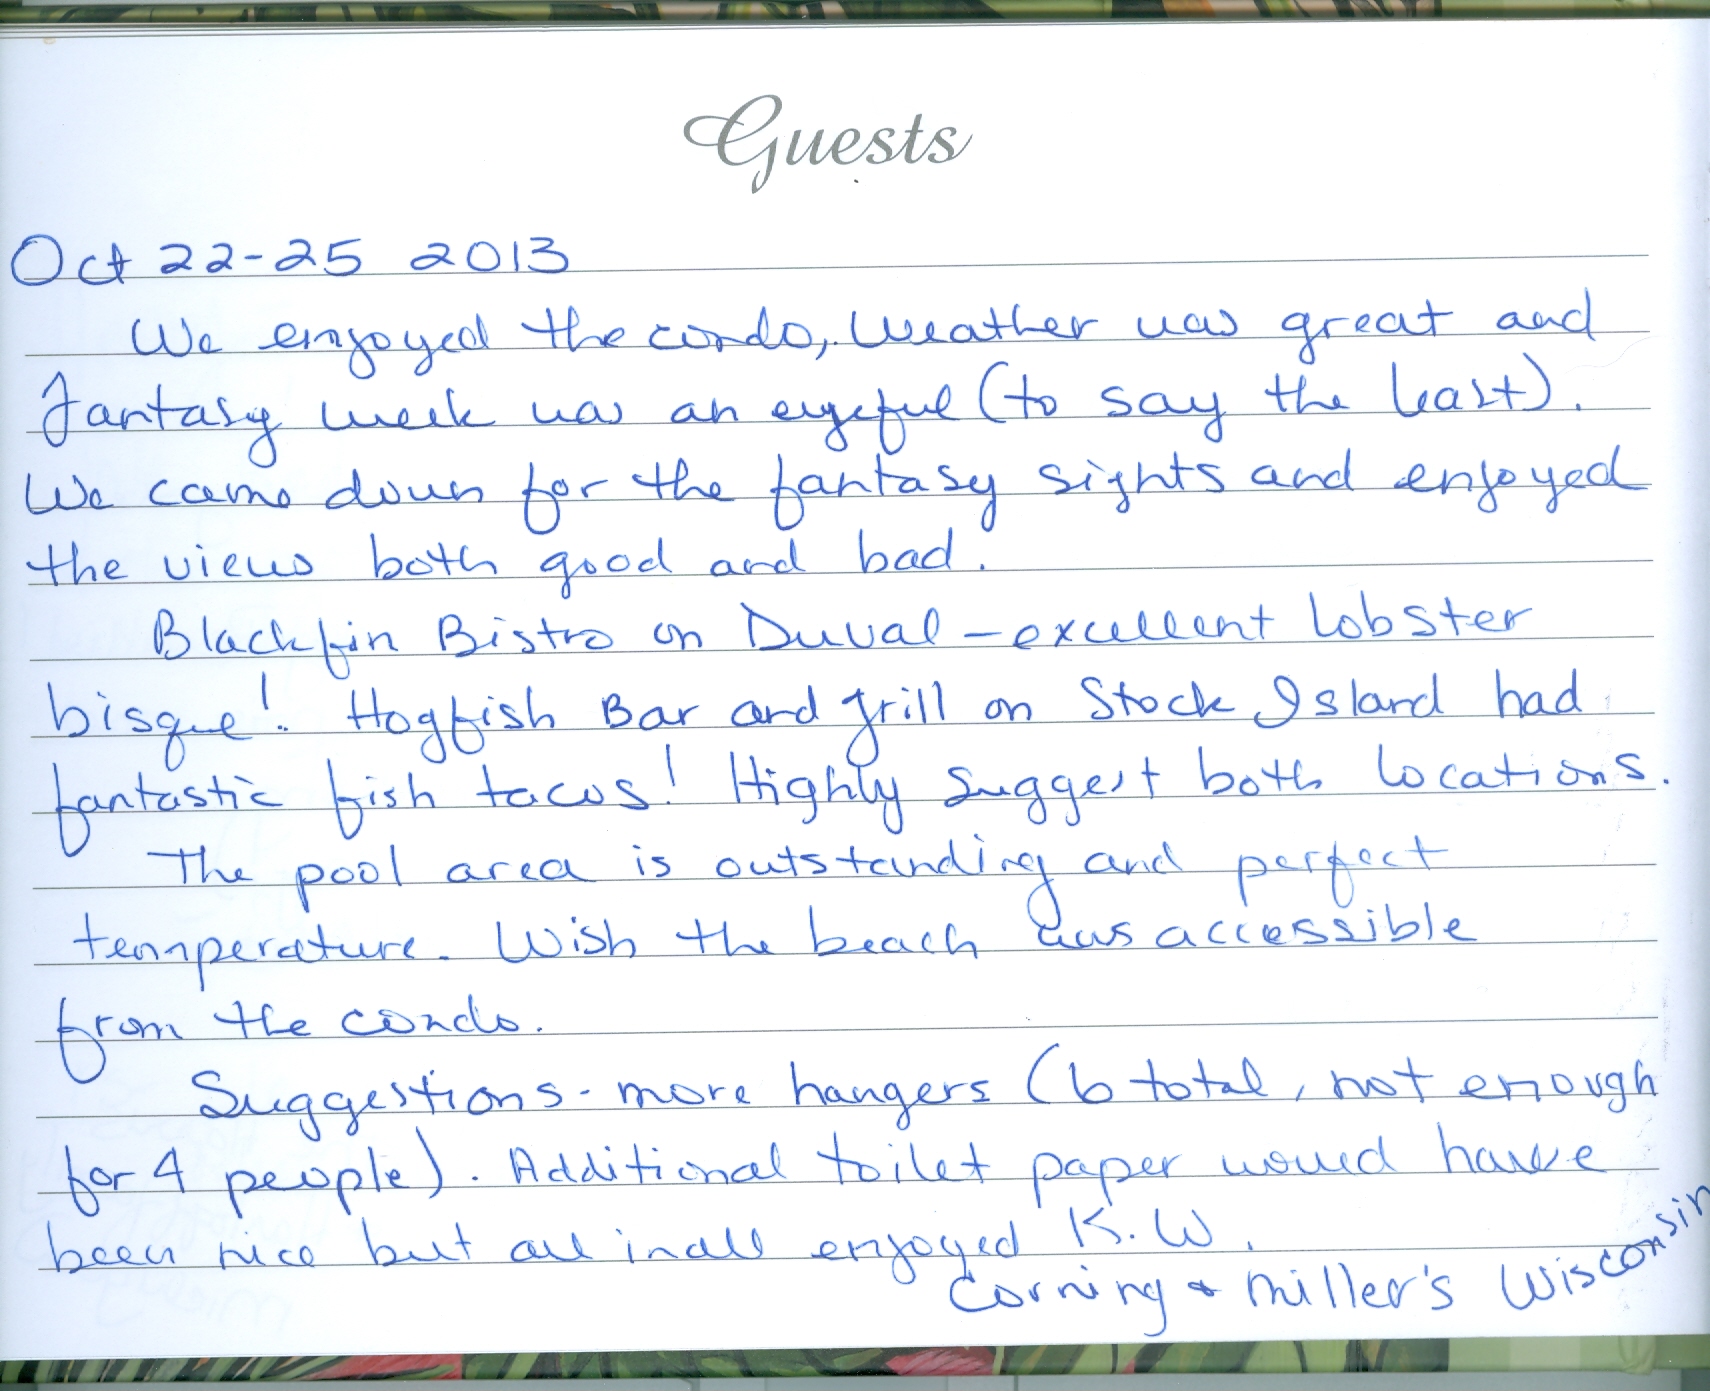 Guests
Oct 22-25 2013
We enjoyed the condo, Weather was great and
Fantasy week was an eyeful (to say the least).
We came down for the fantasy sights and enjoyed
the views both good and bad.
Blackfin Bistro on Duval - excellent lobster
bisque! Hogfish Bar and grill on Stock Island had
fantastic fish tacos! Highly Suggest both locations.
The pool area is outstanding and perfect
temperature. Wish the beach was accessible
from the condo.
Suggestions - more hangers (6 total, not enough
for 4 people). Additional toilet paper would have
been nice but all in all enjoyed K.W.
Corning & Miller's Wisconsin